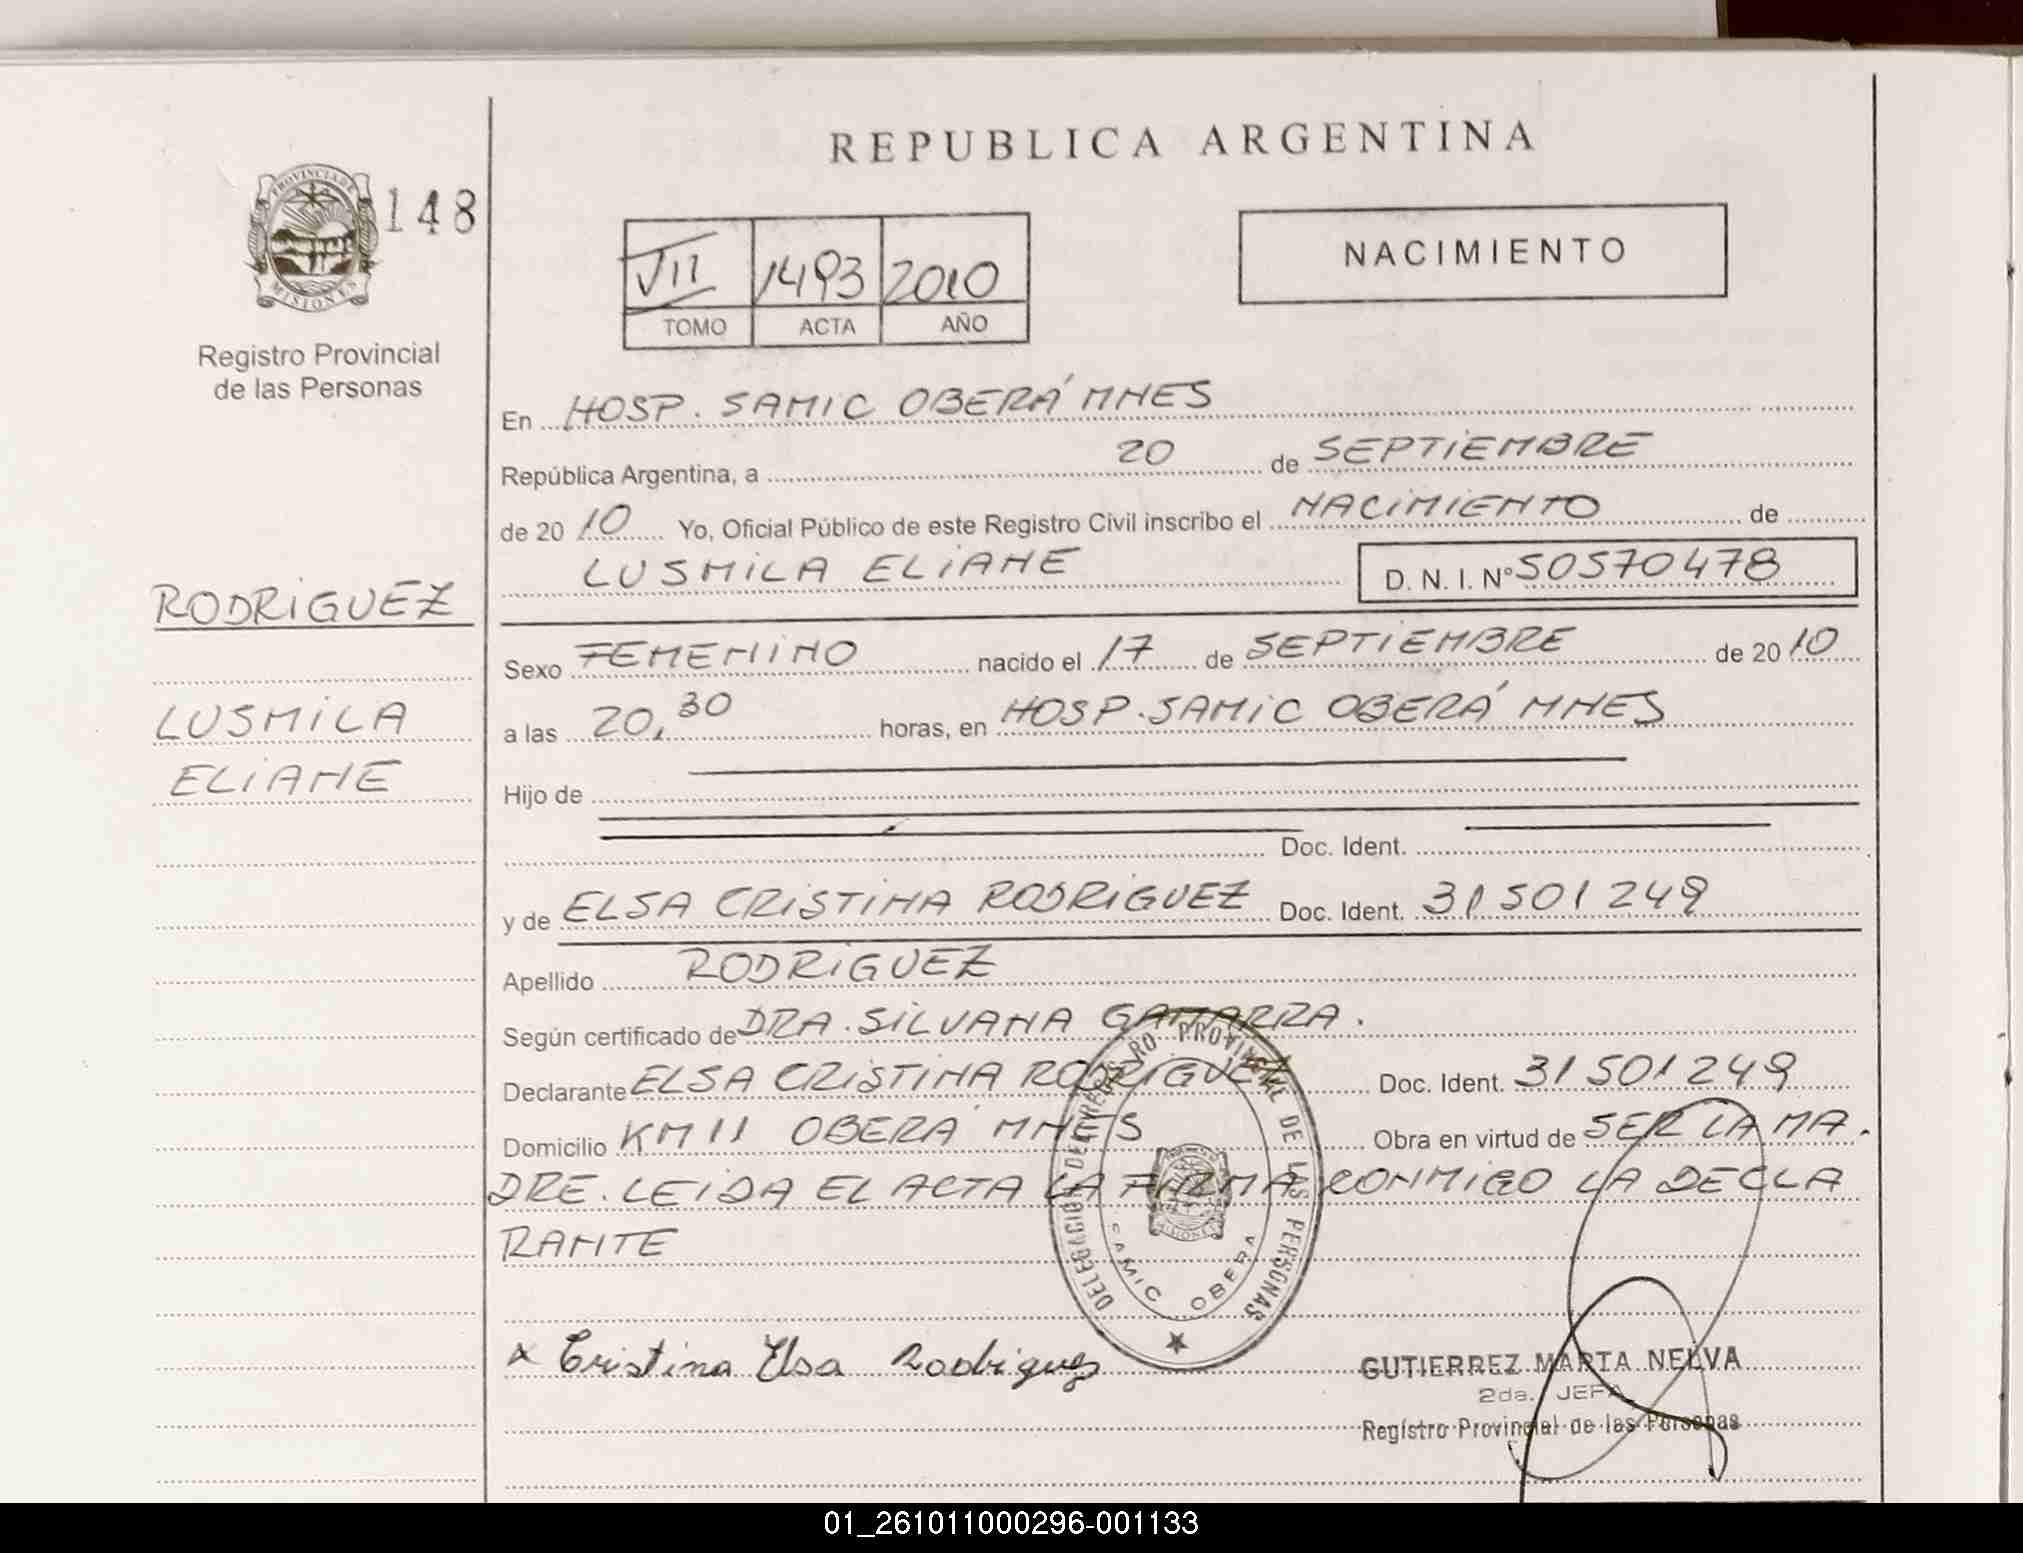 REPUBLICA ARGENTINA
PROVINCIA DE
MISIONES
148
Registro Provincial
de las Personas
VII 1493 2010
TOMO ACTA AÑO
NACIMIENTO
En HOSP. SAMIC OBERÁ MNES
República Argentina, a 20 de SEPTIEMBRE
de 20 10 Yo, Oficial Público de este Registro Civil inscribo el NACIMIENTO de
LUSMILA ELIANE D. N. I. Nº 50570478
RODRIGUEZ
LUSMILA
ELIANE
Sexo FEMENINO nacido el 17 de SEPTIEMBRE de 20 10
a las 20,30 horas, en HOSP. SAMIC OBERÁ MNES
Hijo de
Doc. Ident.
y de ELSA CRISTINA RODRIGUEZ Doc. Ident. 31501249
Apellido RODRIGUEZ
Según certificado de DRA. SILVANA GAMARRA.
Declarante ELSA CRISTINA RODRIGUEZ Doc. Ident. 31501249
Domicilio KM 11 OBERA MNES Obra en virtud de SER LA MA.
DRE. LEIDA EL ACTA LA FIRMA CONMIGO LA DECLA
RANTE
DELEGACION DEL REGISTRO PROVINCIAL DE LAS PERSONAS
SAMIC OBERA
x Cristina Elsa Rodriguez
GUTIERREZ MARTA NELVA
2da. JEFA
Registro Provincial de las Personas
01_261011000296-001133